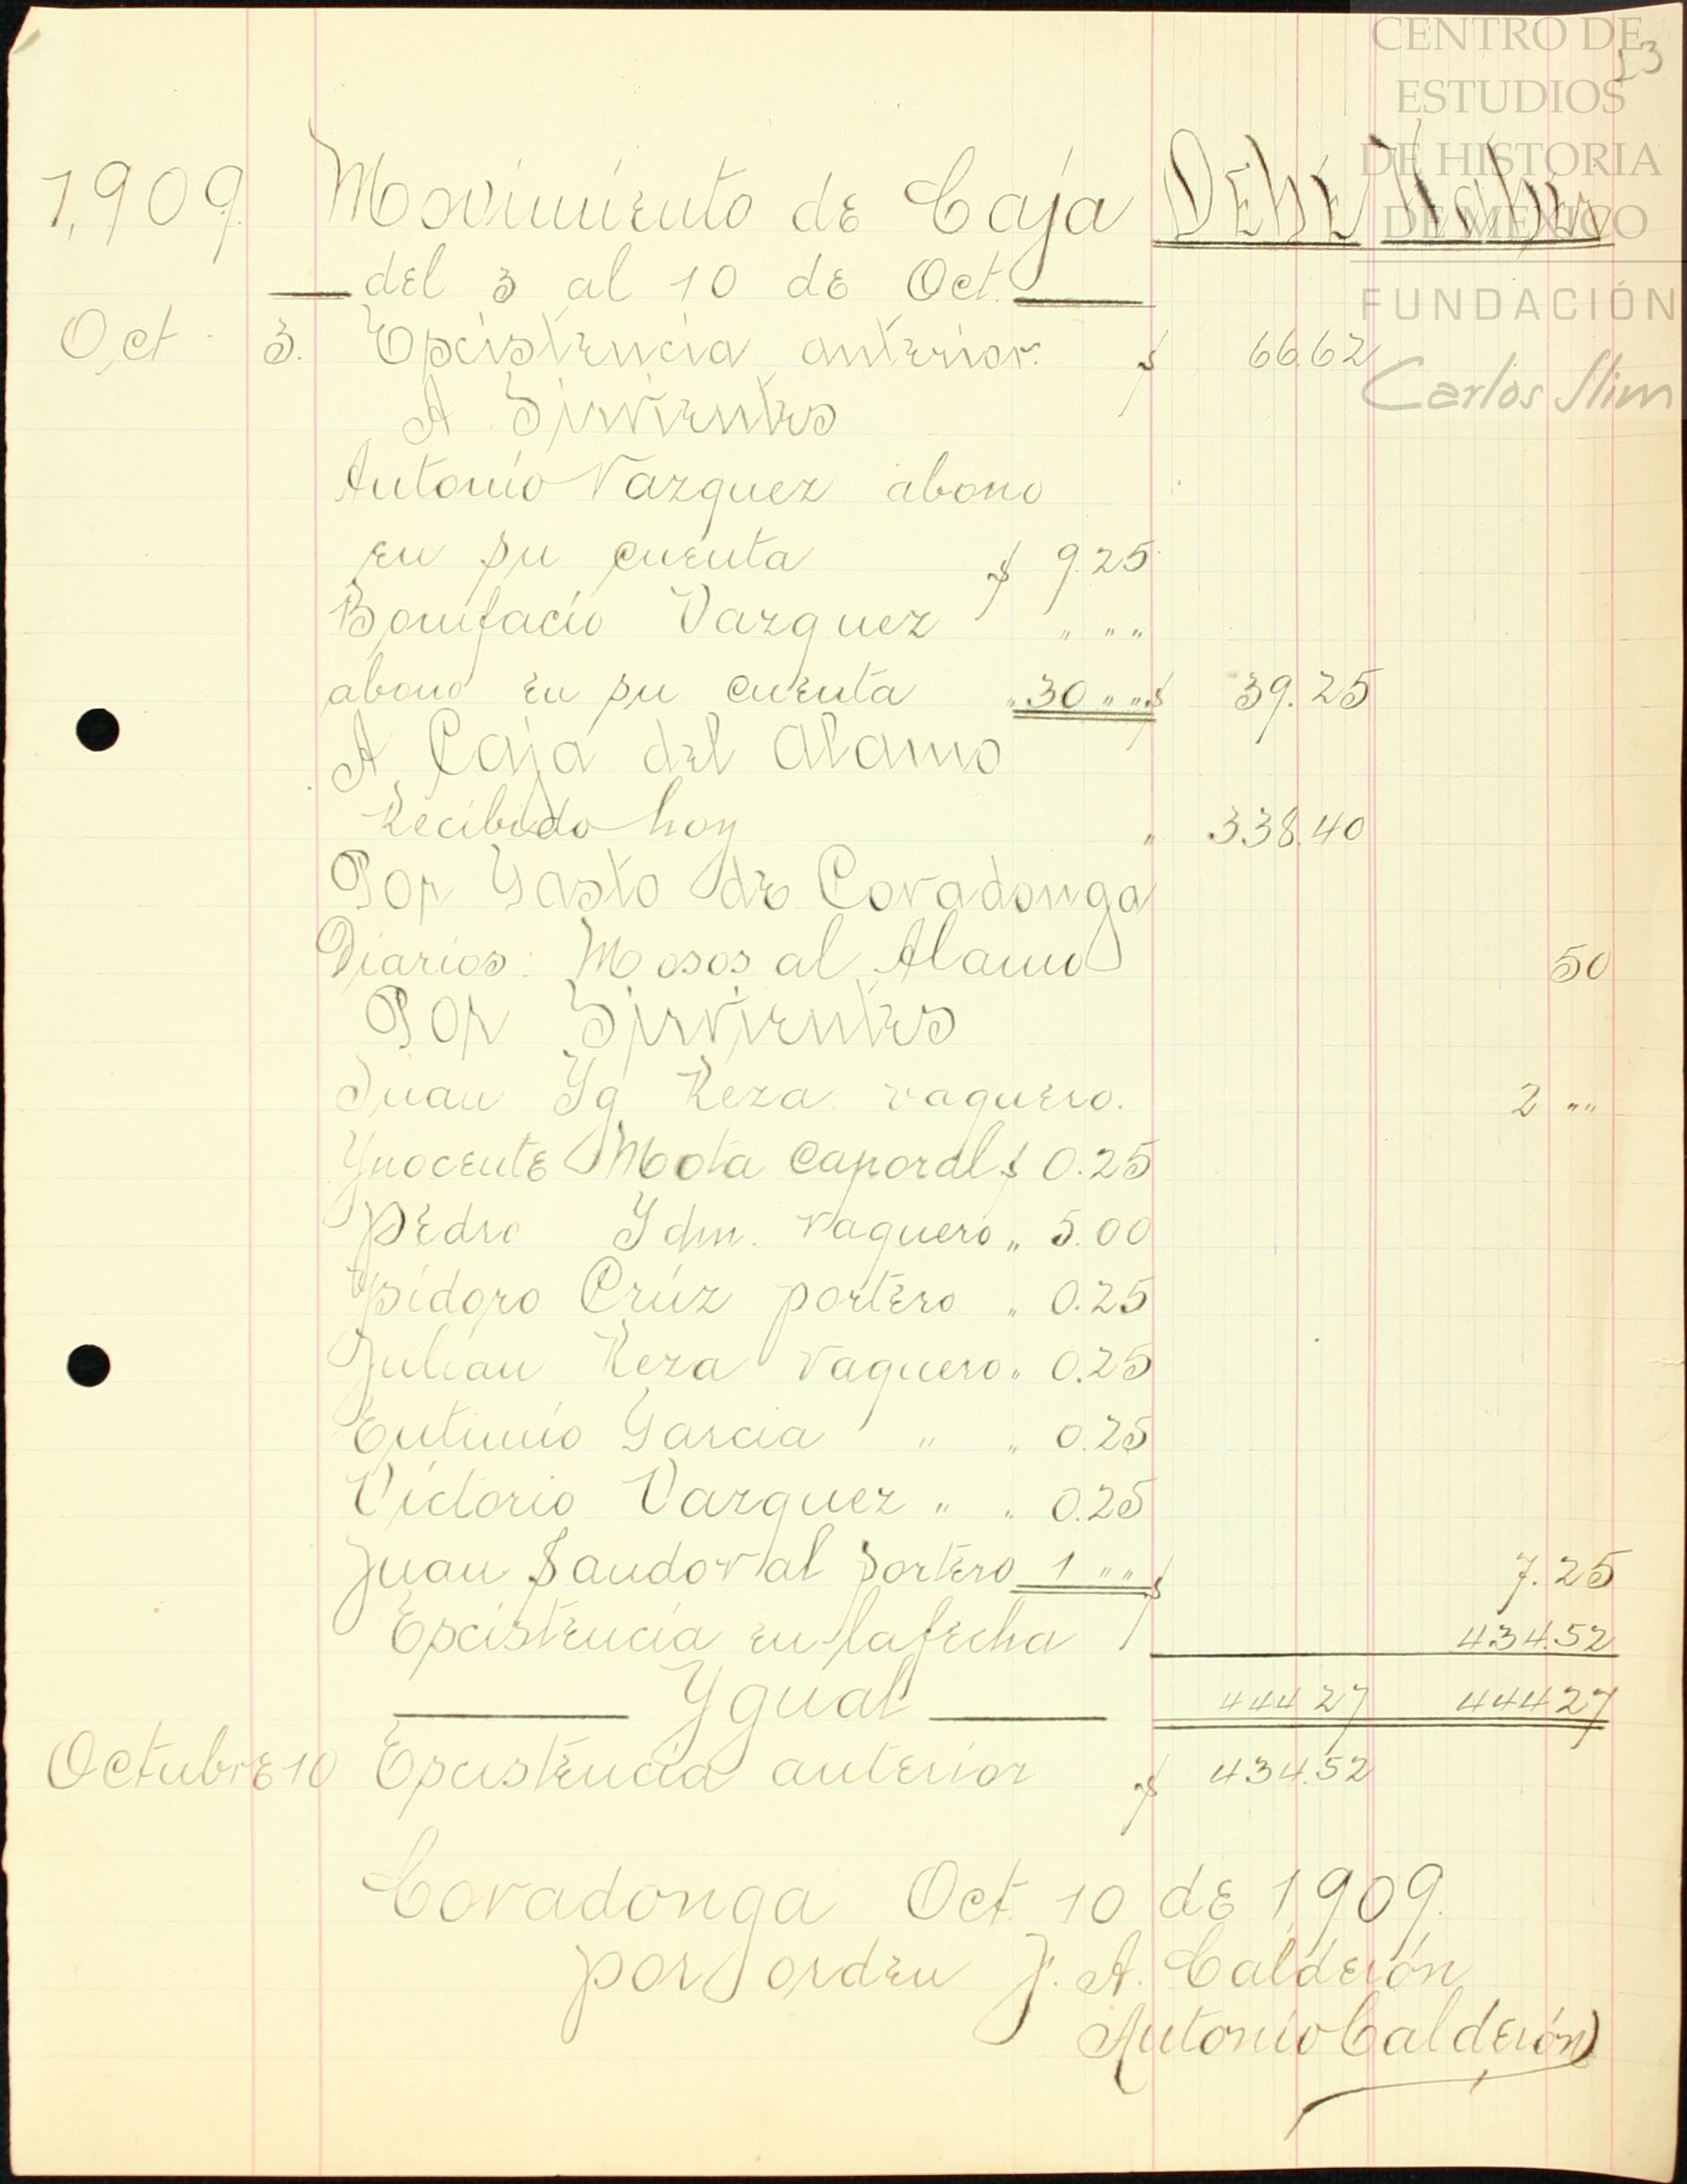 CENTRO DE
ESTUDIOS
DE HISTORIA
DE MÉXICO
FUNDACIÓN
Carlos Slim
53
1,909. Movimiento de Caja DEBE Haber
del 3 al 10 de Oct.
Oct 3. Epcistencia anterior. $ 66.62
A Sirvientes
Antonio Vazquez abono
en su cuenta $ 9.25
Bonifacio Vazquez " " "
abono en su cuenta " 30 " " $ 39.25
A Caja del Alamo
Recibido hoy " 338.40
Por Gasto de Covadonga
Diarios: Mosos al Alamo 50
Por Sirvientes
Juan Yg Reza vaquero. 2 " "
Ynocente Mota caporal $ 0.25
Pedro Ydm. vaquero " 5.00
Ysidoro Crúz portero " 0.25
Julian Reza vaquero " 0.25
Eutimio Garcia " " 0.25
Victorio Vazquez " " 0.25
Juan Sandoval portero 1 " " $ 7.25
Epcistencia en la fecha 434.52
Ygual 444 27 444 27
Octubre 10 Epcistencia anterior $ 434.52
Covadonga Oct. 10 de 1,909.
por orden J. A. Calderón
Antonio Calderón